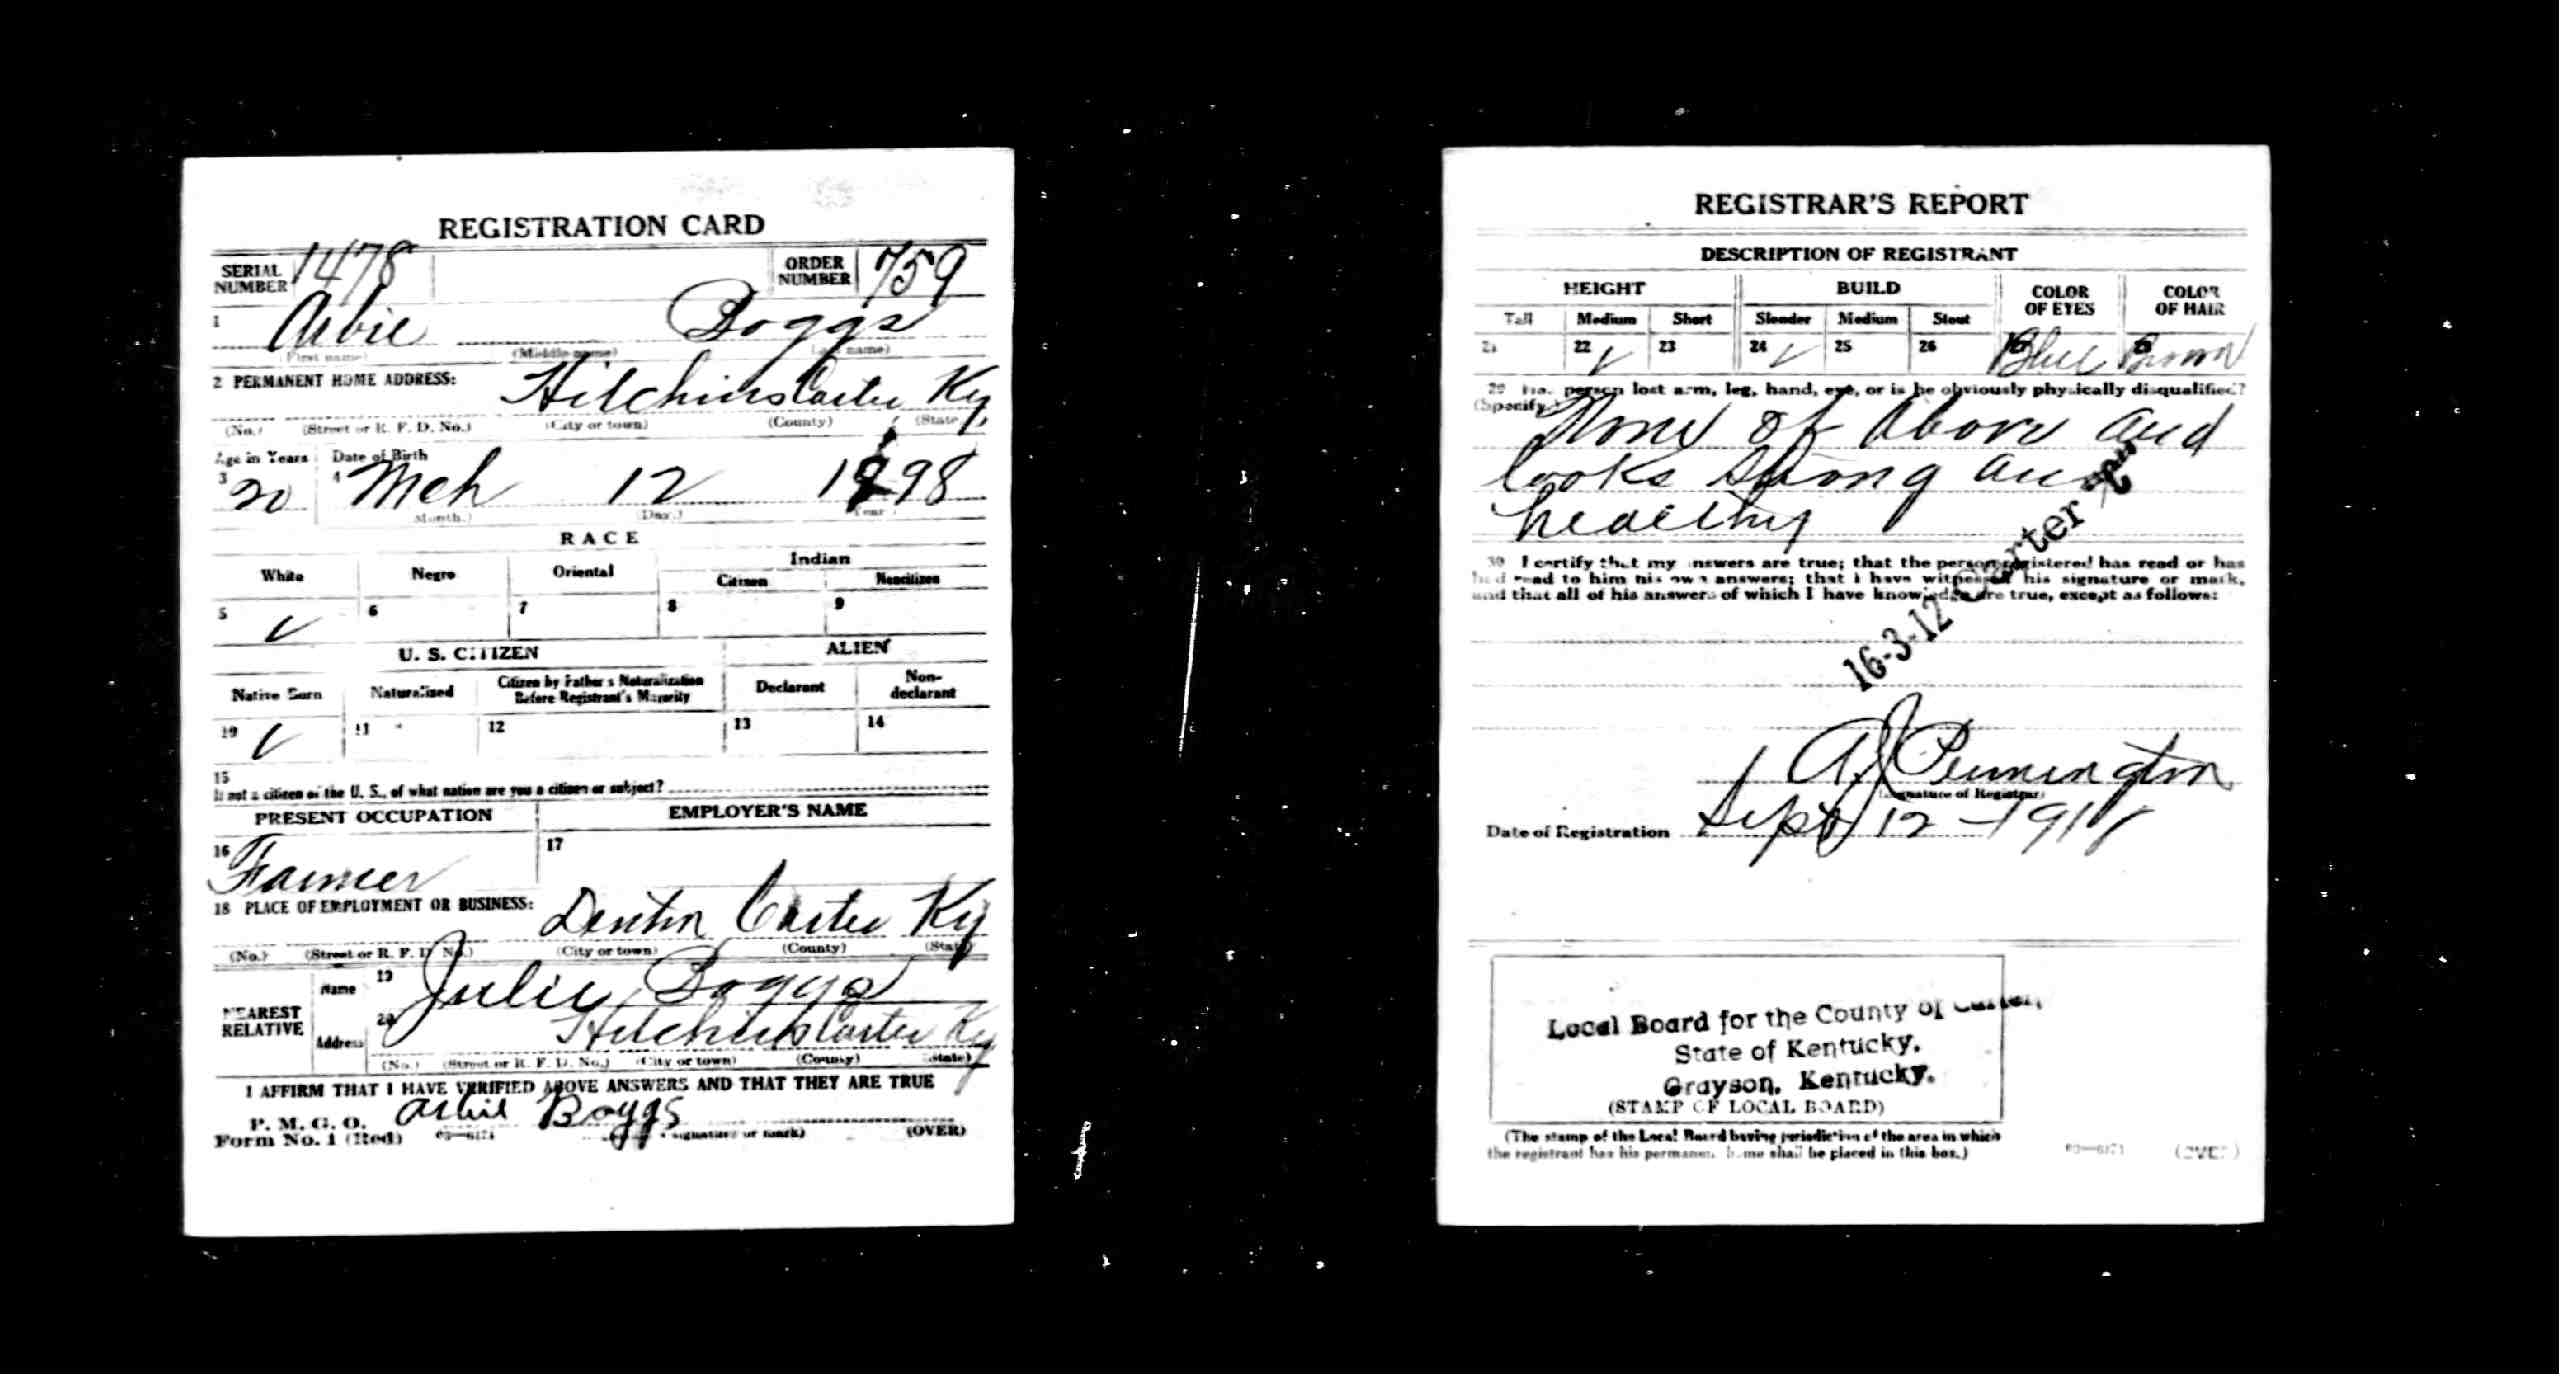 REGISTRATION CARD
SERIAL NUMBER 1478 ORDER NUMBER 759
1 Arbie Boggs
(First name) (Middle name) (Last name)
2 PERMANENT HOME ADDRESS: Hitchins Carter Ky
(No.) (Street or R. F. D. No.) (City or town) (County) (State)
Age in Years Date of Birth
3 20 4 Mch 12 1898
(Month.) (Day.) (Year.)
RACE
White Negro Oriental Indian
Citizen Noncitizen
5 ✓ 6 7 8 9
U. S. CITIZEN ALIEN
Native Born Naturalized Citizen by Father's Naturalization Before Registrant's Majority Declarant Non-declarant
10 ✓ 11 12 13 14
15
If not a citizen of the U. S., of what nation are you a citizen or subject?
PRESENT OCCUPATION EMPLOYER'S NAME
16 Farmer 17
18 PLACE OF EMPLOYMENT OR BUSINESS: Denton Carter Ky
(No.) (Street or R. F. D. No.) (City or town) (County) (State)
NEAREST RELATIVE Name 19 Julie Boggs
Address 20 Hitchins Carter Ky
(No.) (Street or R. F. D. No.) (City or town) (County) (State)
I AFFIRM THAT I HAVE VERIFIED ABOVE ANSWERS AND THAT THEY ARE TRUE
P. M. G. O.
Form No. 1 (Red) 03—6171 Arbie Boggs (Signature or mark) (OVER)
REGISTRAR'S REPORT
DESCRIPTION OF REGISTRANT
HEIGHT BUILD COLOR OF EYES COLOR OF HAIR
Tall Medium Short Slender Medium Stout
21 22 ✓ 23 24 ✓ 25 26 27 Blue 28 Brown
29 Has person lost arm, leg, hand, eye, or is he obviously physically disqualified?
(Specify.) None of Above and
looks Strong and
healthy
30 I certify that my answers are true; that the person registered has read or has
had read to him his own answers; that I have witnessed his signature or mark,
and that all of his answers of which I have knowledge are true, except as follows:
16-3-12 Carter
A J Pennington
(Signature of Registrar)
Date of Registration Sept 12 - 1918
Local Board for the County of Carter,
State of Kentucky.
Grayson, Kentucky.
(STAMP OF LOCAL BOARD)
(The stamp of the Local Board having jurisdiction of the area in which
the registrant has his permanent home shall be placed in this box.) 03—6171 (OVER)